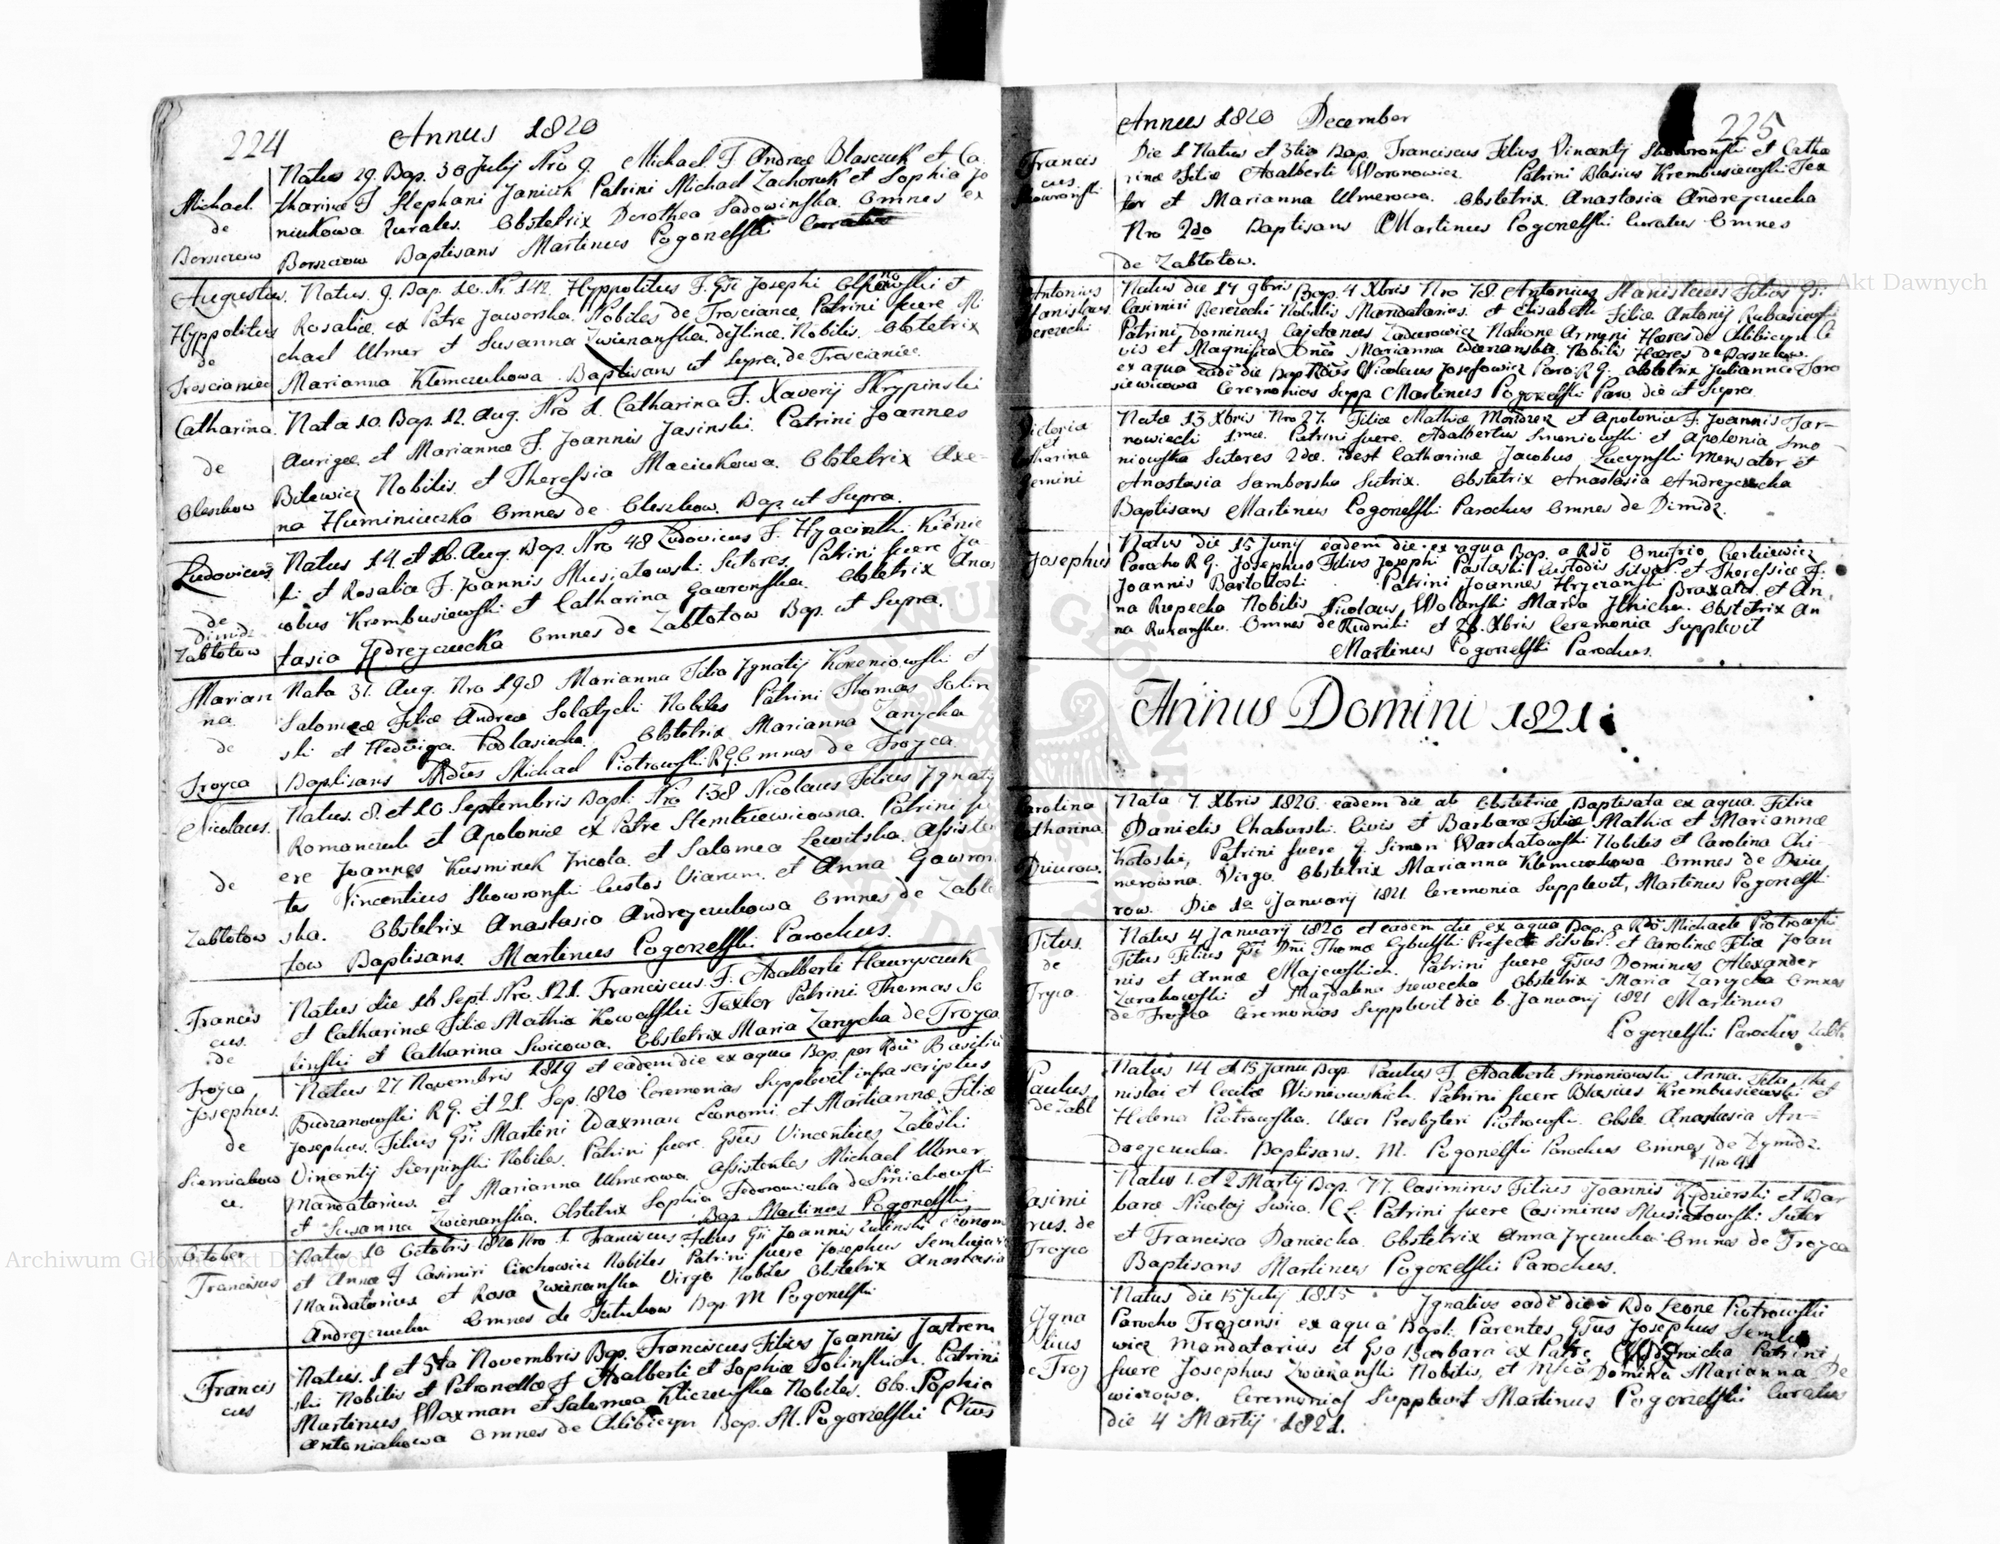 224 Annus 1820
Michael
de
Borszczow
Natus 29. Bap. 30 July Nro 9. Michael F Andreæ Blasczuk et Ca
tharinæ F Stephani Janiuk Patrini Michael Zachoruk et Sophia Ja
niukowa Rurales. Obstetrix Dorothea Sadowinska. Omnes ex
Borszczow Baptisans Martinus Pogorzelski
Augustus.
Hyppolitus
de
Troscianiec
Natus. 9. Bap. 10. Nr. 142. Hyppolitus F. Gsi Josephi et
Rosaliæ ex Patre Jaworska. Nobiles de Troscianca. Patrini fuere Mi
chael Ulmer et Susanna Zwienanska. Nobilis. Obstetrix
Marianna Klemczukowa. Baptisans ut Supra. de Troscianiec.
Catharina.
de
Oleszkow
Nata 10. Bap. 12. Aug. Nro 1. Catharina F. Xaverij Skrypinski
Aurigæ. et Mariannæ F. Joannis Jasinski. Patrini Joannes
Bilewicz Nobilis et Theressia Maciukowa. Obstetrix Axe-
na Huminiuczka Omnes de Oleszkow. Bap. ut Supra.
Ludovicus
de
Dimidz
Zabłotow
Natus 14. et 16. Aug. Bap. Nro 48 Ludovicus F. Hyacinthi
ski et Rosaliæ F. Joannis Musiatowski Sutores. Patrini fuere Ja
cobus Krembusiewski et Catharina Gawronska. Obstetrix Anas
tasia Omnes de Zabłotow Bap. ut Supra.
Marian
na
de
Troyca
Nata 31. Aug. Nro 198 Marianna Filia Ignatij Korzeniowski et
Salomeæ Filiæ Andreæ Solatycki Nobiles Patrini Thomas Solin
ski et Hedviga Podlasiecka. Obstetrix Marianna Zarycka
Baptisans Rdus Michael Piotrowski R.G. Omnes de Troyca
Nicolaus.
de
Zabłotow
Natus. 8. et 10 Septembris Bapt. Nro 138 Nicolaus Filius Ignatij
Romanczuk et Apoloniæ ex Patre Slemkiewicowna. Patrini fu
ere Joannes Kusminek Iricola. et Salomea Lewitska. Assisten
tes Vincentius Skowronski Custos Viarum. et Anna Gawron
ska. Obstetrix Anastasia Andrejczukowa Omnes de Zabło
tow Baptisans. Martinus Pogorzelski Parochus.
Francis
cus.
de
Troyca
Natus die 16 Sept. Nro. 121. Franciscus. F. Adalberti Hawryszczuk
et Catharinæ Filiæ Mathiæ Kowalski Textor Patrini Thomas So
linski et Catharina Swicowa. Obstetrix Maria Zarycka de Troyca
Josephus.
de
Siemiakow
ce.
Natus 27 Novembris 1819 et eadem die ex aqua Bap. per Rdum Basilium
Budzanowski R.G. et 21. Sep. 1820 Ceremonias Supplevit infra scriptus
Josephus. Filius Gsi Martini Waxman Economi. et Mariannæ Filiæ
Vincentij Sierpinski Nobiles. Patrini fuere. Gsus Vincentius Zaleski
Mandatarius. et Marianna Ulmerowa. Assistentes Michael Ulmer
et Susanna Zwienanska. Obstetrix Sophia de Simiakowski
Bap. Martinus Pogorzelski
October
Franciscus
Natus 10 Octobris 1820 Nro 1. Franciscus Filius Gsi Joannis Zulinski Econom
et Annæ F Casimiri Ciechowicz Nobiles Patrini fuere Josephus
Mandatarius et Rosa Zwienanska Virgo Nobiles Obstetrix Anastasia
Andrejczucka Omnes de Tutukow Bap. M Pogorzelski
Francis
cus
Natus. 1 et 5ta Novembris Bap. Franciscus Filius Joannis Jastrem
ski Nobilis et Petronellæ F Adalberti et Sophiæ Tolinskich. Patrini
Martinus Waxman et Salomea Kliczewska Nobiles. Ob. Sophia
Antoniakowa Omnes de Chlibiczyn Bap. M. Pogorzelski
Annus 1820 December 225
Francis
cus.
Skowronski
Die 1 Natus et 3tio Bap. Franciscus Filius Vincentij Skowronski et Catha
rinæ Filiæ Adalberti Woronowicz Patrini Blasius Krembusiewski Tex
tor et Marianna Ulmerowa. Obstetrix Anastasia Andrejczucka
Nro 2do Baptisans Martinus Pogorzelski Curatus Omnes
de Zabłotow.
Antonius
Stanislaus
Berezecki
Natus die 14 9bris Bap. 4 Xbris Nro 78. Antonius Stanislaus Filius Gsi.
Casimiri Berezecki Nobilis Mandatarius. et Elisabethæ Filiæ Antonij
Patrini Dominus Cajetanus Zadurowicz Natione Armeni Hæres de Chlibiczyn Ci
vis et Magnifica Dna Marianna Nobilis Hæres de Borszczow.
ex aqua eade die Bap Rdus Nicolaus Josefowicz Paro: R.G. Obstetrix Julianna Toro
siewicowa Ceremonias Supp Martinus Pogorzelski Paro. die ut Supra
Victoria
et
Catharina
Gemini
Natæ 13 Xbris Nro 27. Filiæ Mathiæ Mondzer et Apoloniæ F. Joannis Tar-
nowiecki 1mæ. Patrini fuere. Adalbertus Smoniowski et Apolonia Smo
niowska Sutores 2dæ. idest Catharinæ Jacobus Lucynski Mensator et
Anastasia Samborska Sutrix. Obstetrix Anastasia Andrejczucka
Baptisans Martinus Pogorzelski Parochus Omnes de Dimidz.
Josephus
Natus die 15 Junij eadem die ex aqua Bap. a Rdo Onufrio
Parocho R.G. Josephus Filius Josephi Paslaski Custodis Silvar. et Theressiæ F.
Joannis Bartoloski. Patrini Joannes Hryczanski Braxator. et An,
na Rzepecka Nobilis Nicolaus Wolanski Maria Ilnicka. Obstetrix An
na Omnes de Rudniki et 26. Xbris Ceremonia Supplevit
Martinus Pogorzelski Parochus.
Annus Domini 1821.
Carolina
Catharina.
Dziurow.
Nata 7. Xbris 1820. eadem die ab Obstetrice Baptisata ex aqua. Filia
Danielis Chaburski. Civis et Barbaræ Filiæ Mathiæ et Mariannæ
Patrini fuere G. Simon Warchatowski Nobilis et Carolina Chi-
nerowna. Virgo. Obstetrix Marianna Klemczukowa Omnes de Dziu,
row. Die 1a January 1821 Ceremonia Supplevit, Martinus Pogorzelski
Titus.
de
Troyca.
Natus 4 Januarij 1820 et eadem die ex aqua Bap. a Rdo Michaele Piotrowski
Titus Filius Gsi Dni Thomæ Cybulski Prefecti Silvar. et Carolinæ Filiæ Joan
nis et Annæ Majewskich. Patrini fuere Gsus Dominus Alexander
Zarakowski et Magdalena Szewecka Obstetrix Maria Zarycka Omnes
de Troyca Ceremonias Supplevit die 6. January 1821 Martinus
Pogorzelski Parochus Zabło.
Paulus
de Zabl
Natus 14 et 15 Janu Bap. Paulus F. Adalberti Smoniowski Anna. Filiæ Sta
nislai et Ceciliæ Wisniowskich. Patrini fuere Blasius Krembusiewski et
Helena Piotrowska. Uxor Presbyteri Piotrowski. Obste Anastasia An-
drejczucka. Baptisans. M. Pogorzelski Parochus Omnes de Dymidz.
Nro 41
Casimi
rus. de
Troyca
Natus 1. et 2 Martij Bap. 77. Casimirus Filius Joannis Kydzierski et Bar
baræ Nicolaj Swica. Patrini fuere Casimirus Musiatowski Suter
et Francisca Daniecka. Obstetrix Anna Omnes de Troyca
Baptisans Martinus Pogorzelski Parochus.
Igna
tius
de Troj
Natus die 15 July 1815 Ignatius eade die a Rdo Leone Piotrowski
Parocho Trojansi ex aqua Bapt. Parentes Gsus Josephus Semlu
wicz Mandatarius et Gsa Barbara ex Patre Patrini
fuere Josephus Zwienanski Nobilis, et Mfca Domina Marianna De
wiczowa. Ceremonias Supplevit Martinus Pogorzelski Curatus
die 4 Martij 1821.
Archiwum Główne Akt Dawnych
Archiwum Główne Akt Dawnych
ARCHIWUM GŁÓWNE AKT DAWNYCH